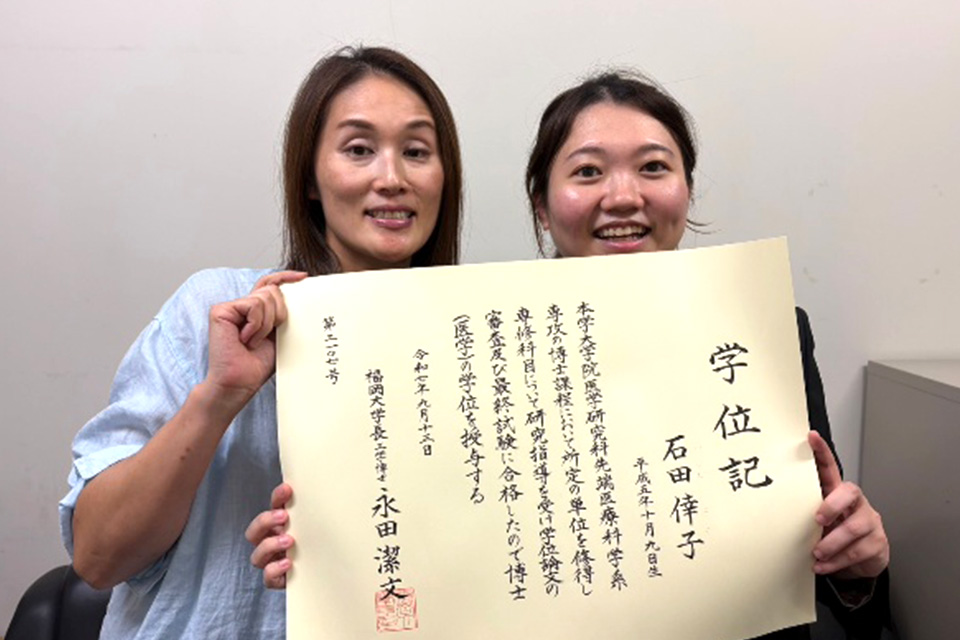 学位記
石田倖子
平成五年十月九日生
本学大学院医学研究科先端医療科学系
専攻の博士課程において所定の単位を修得し
専修科目について研究指導を受け学位論文の
審査及び最終試験に合格したので博士
(医学)の学位を授与する
令和七年九月十三日
福岡大学長工学博士永田潔文
第二一〇七号